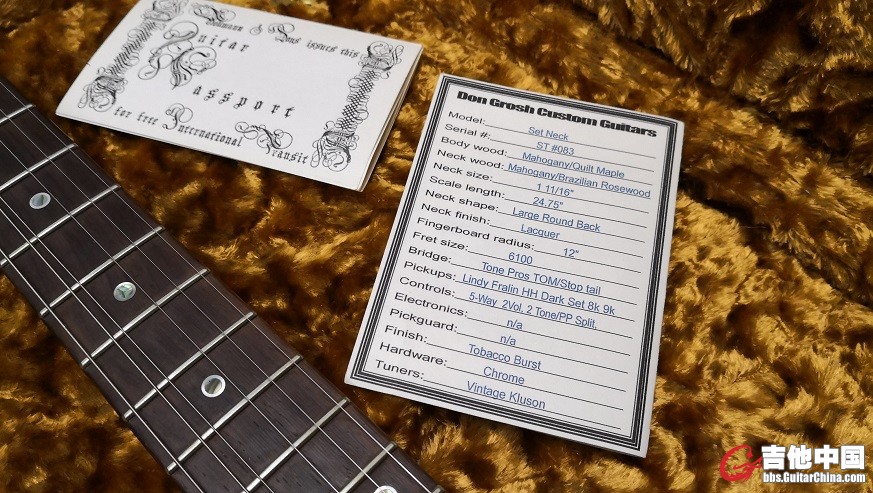 & Sons issues this
Guitar
Passport
for free International Transit
Don Grosh Custom Guitars
Model: Set Neck
Serial #: ST #083
Body wood: Mahogany/Quilt Maple
Neck wood: Mahogany/Brazilian Rosewood
Neck size: 1 11/16"
Scale length: 24.75"
Neck shape: Large Round Back
Neck finish: Lacquer
Fingerboard radius: 12"
Fret size: 6100
Bridge: Tone Pros TOM/Stop tail
Pickups: Lindy Fralin HH Dark Set 8k 9k
Controls: 5-Way 2Vol, 2 Tone/PP Split.
Electronics: n/a
Pickguard: n/a
Finish: Tobacco Burst
Hardware: Chrome
Tuners: Vintage Kluson
吉他中国
bbs.GuitarChina.com